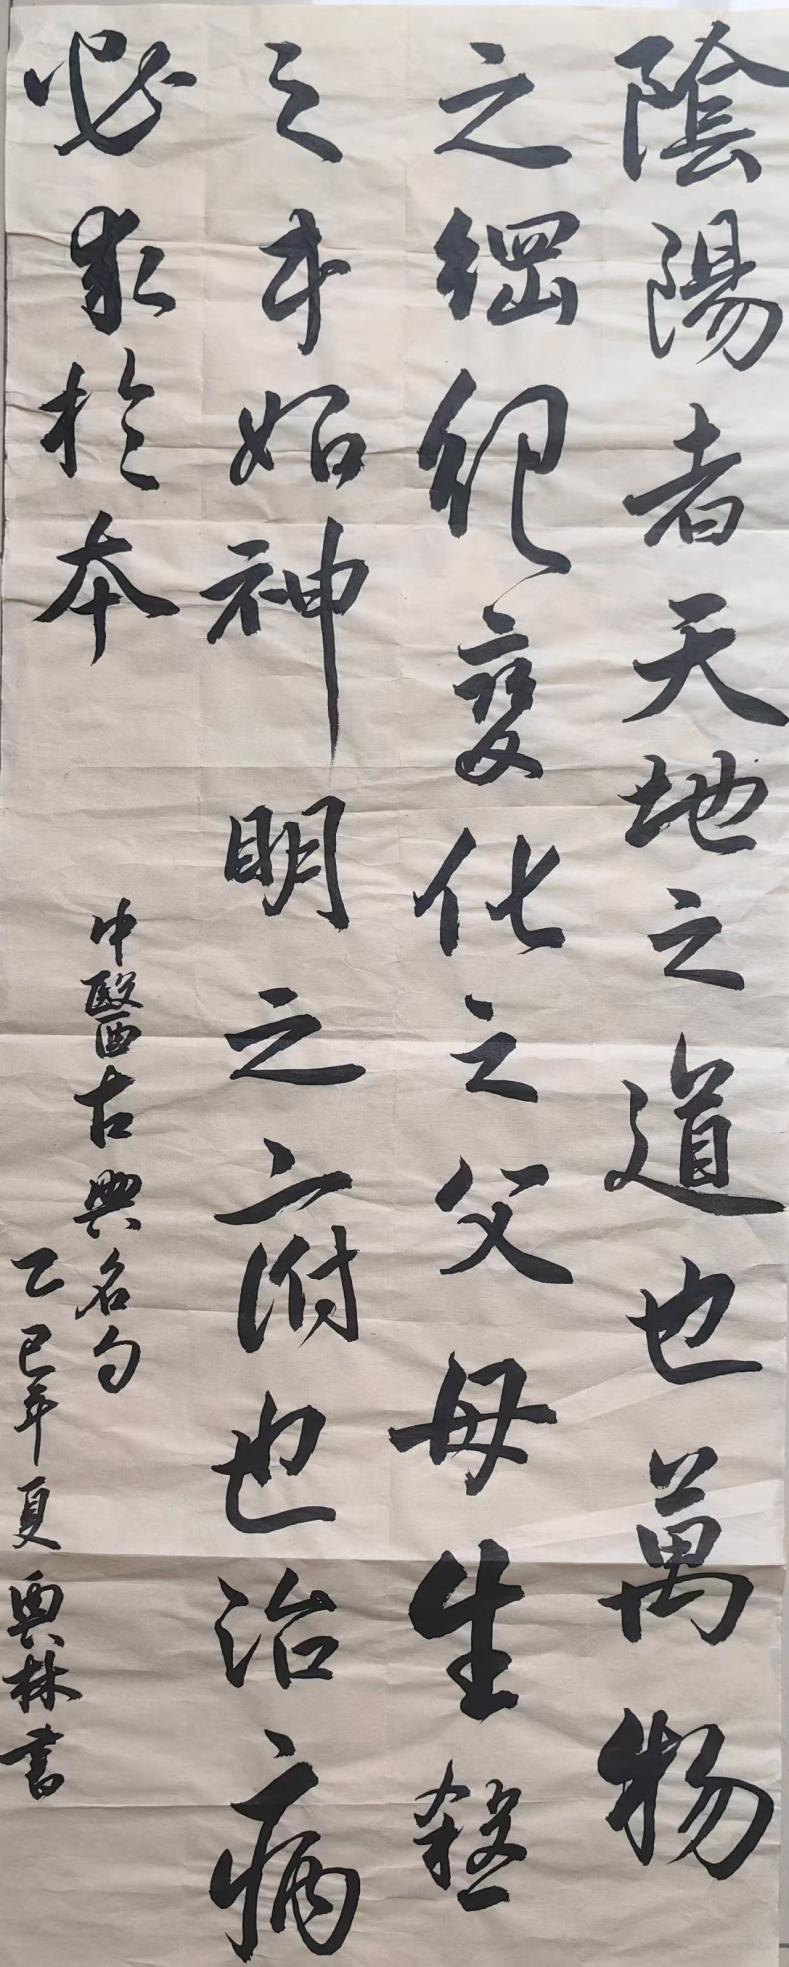 陰陽者天地之道也萬物
之綱紀變化之父母生殺
之本始神明之府也治病
必求於本
中醫古典名句
乙巳年夏興林書